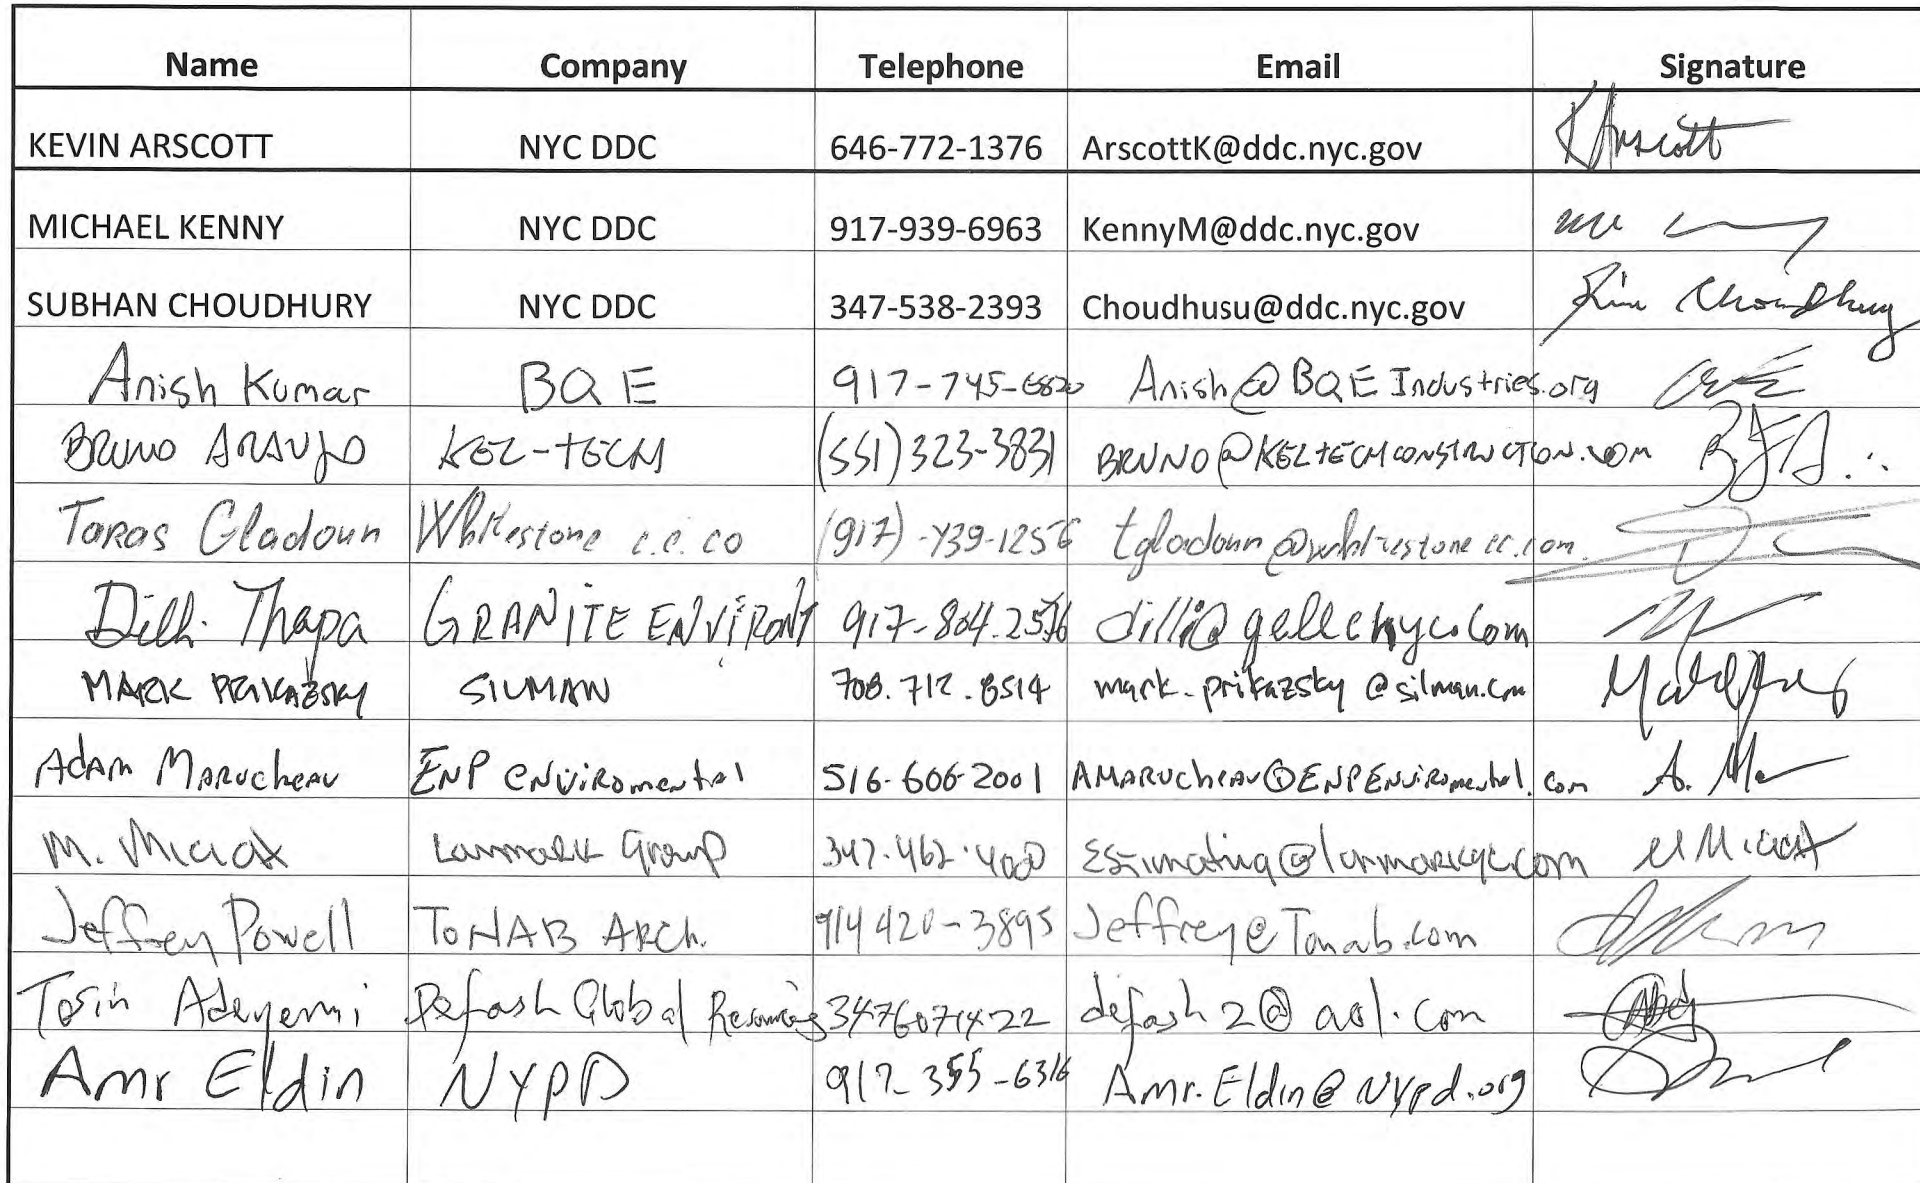 Name Company Telephone Email Signature
KEVIN ARSCOTT NYC DDC 646-772-1376 ArscottK@ddc.nyc.gov KArscott
MICHAEL KENNY NYC DDC 917-939-6963 KennyM@ddc.nyc.gov
SUBHAN CHOUDHURY NYC DDC 347-538-2393 Choudhusu@ddc.nyc.gov Choudhury
Anish Kumar BQE 917-745-6820 Anish@BQEIndustries.org
BRUNO ARAUJO KEL-TECH (551)323-3831 BRUNO@KELTECHCONSTRUCTION.COM B.F.A.
Taras Gladoun Whitestone c.c. co (917)-439-1256 tgladoun@whitestonecc.com
Dilli Thapa GRANITE ENVIRONT 917-804.2576
MARK PRIKAZSKY SILMAN 708.712.8514 mark.prikazsky@silman.com
Adam Marucheau ENP ENViRomental 516-606-2001 AMARUCheAU@ENPENViRomental.com A. Ma
M. Lanmark Group 347.462. Estimating@
Jeffrey Powell ToNAB ARCh. 914 420-3895 Jeffrey@Tonab.com
Tosin Adeyemi Defash Global Resources 3476071422 defash2@aol.com
Amr Eldin NYPD 917-355-6316 Amr.Eldin@NYpd.org